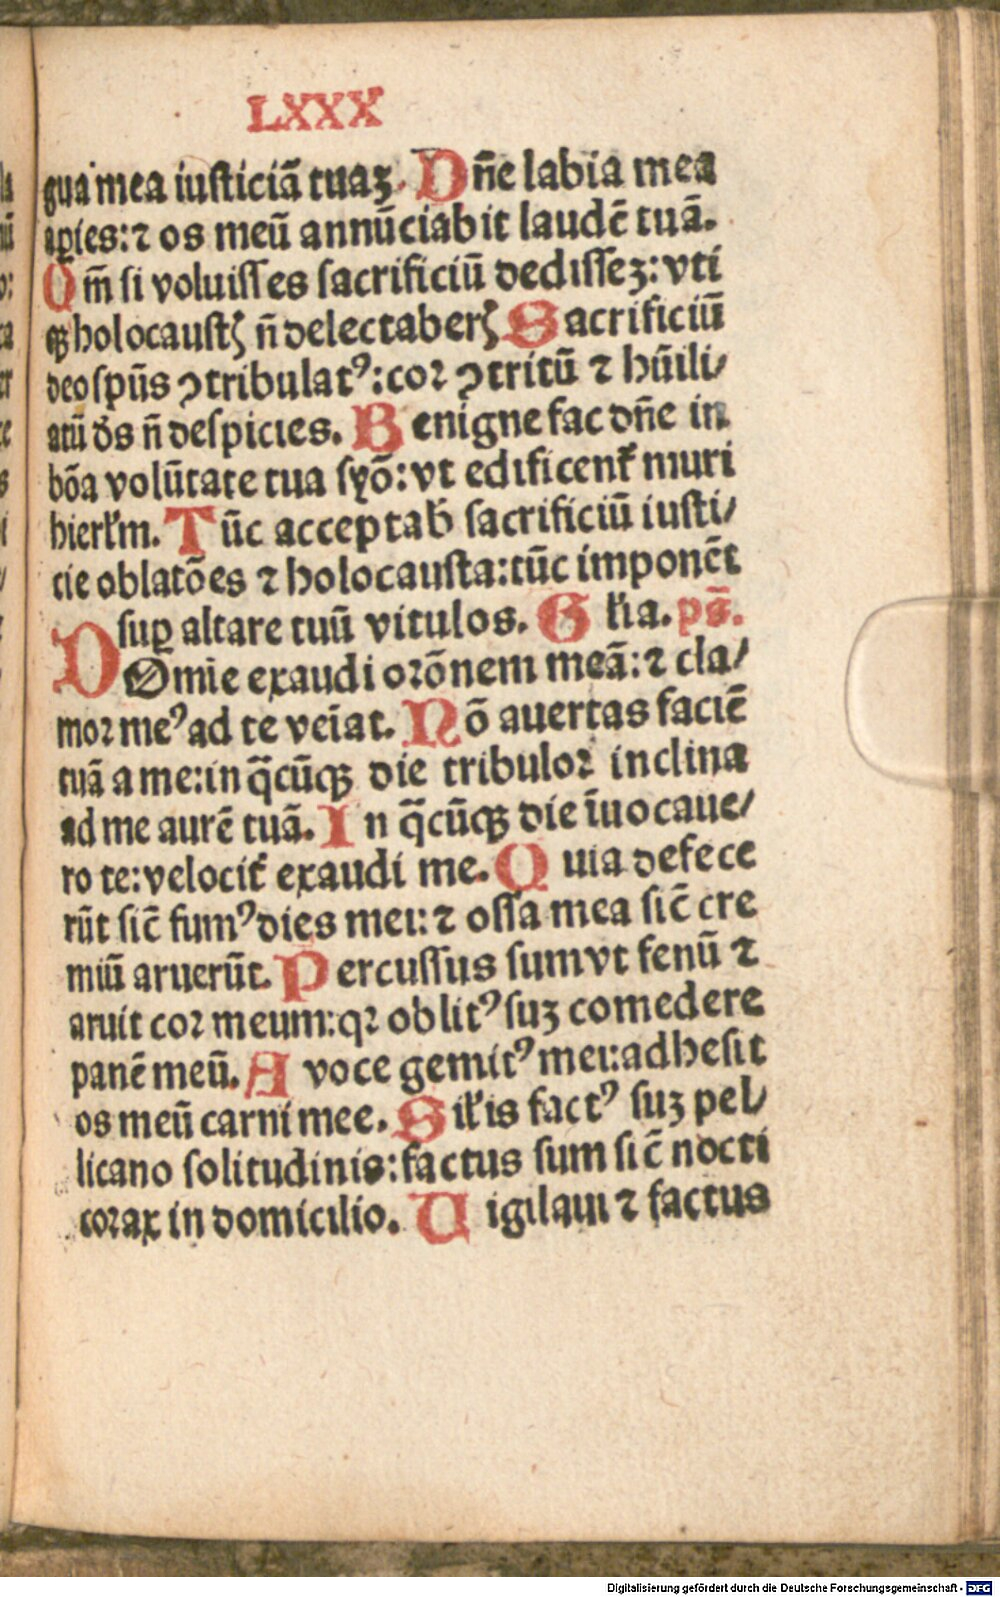 LXXX
gua mea iusticiā tuaꝫ. Dn̄e labia mea
aꝑies: ⁊ os meū annūciabit laudē tuā.
Qm̄ si voluisses sacrificiū dedisseꝫ: vti
ꝙ holocaustꝭ n̄ delectaberꝭ Sacrificiū
deo spūs ꝯtribulatꝰ: coꝛ ꝯtritū ⁊ hūili/
atū ds̄ n̄ despicies. Benigne fac dn̄e in
bōa volūtate tua syō: vt edificent᷑ muri
hierl̄m. Tūc acceptab̄ sacrificiū iusti/
cie oblatōes ⁊ holocausta: tūc imponēt
suꝑ altare tuū vitulos. Gl̄ia. ps̄.
DOmīe exaudi oꝛōnem meā: ⁊ cla/
moꝛ meꝰ ad te veīat. Nō auertas faciē
tuā a me: in q̄cūꝙ die tribuloꝛ inclina
ad me aurē tuā. In q̄cūꝙ die īuocaue/
ro te: velocit᷑ exaudi me. Quia defece
rūt sic̄ fumꝰ dies mei: ⁊ ossa mea sic̄ cre
miū aruerūt. Percussus sum vt fenū ⁊
aruit coꝛ meum: qꝛ oblitꝰ suꝫ comedere
panē meū. A voce gemitꝰ mei: adhesit
os meū carni mee. Sil̄is factꝰ suꝫ pel/
licano solitudinis: factus sum sic̄ nocti
coꝛax in domicilio. Uigilaui ⁊ factus
Digitalisierung gefördert durch die Deutsche Forschungsgemeinschaft - DFG